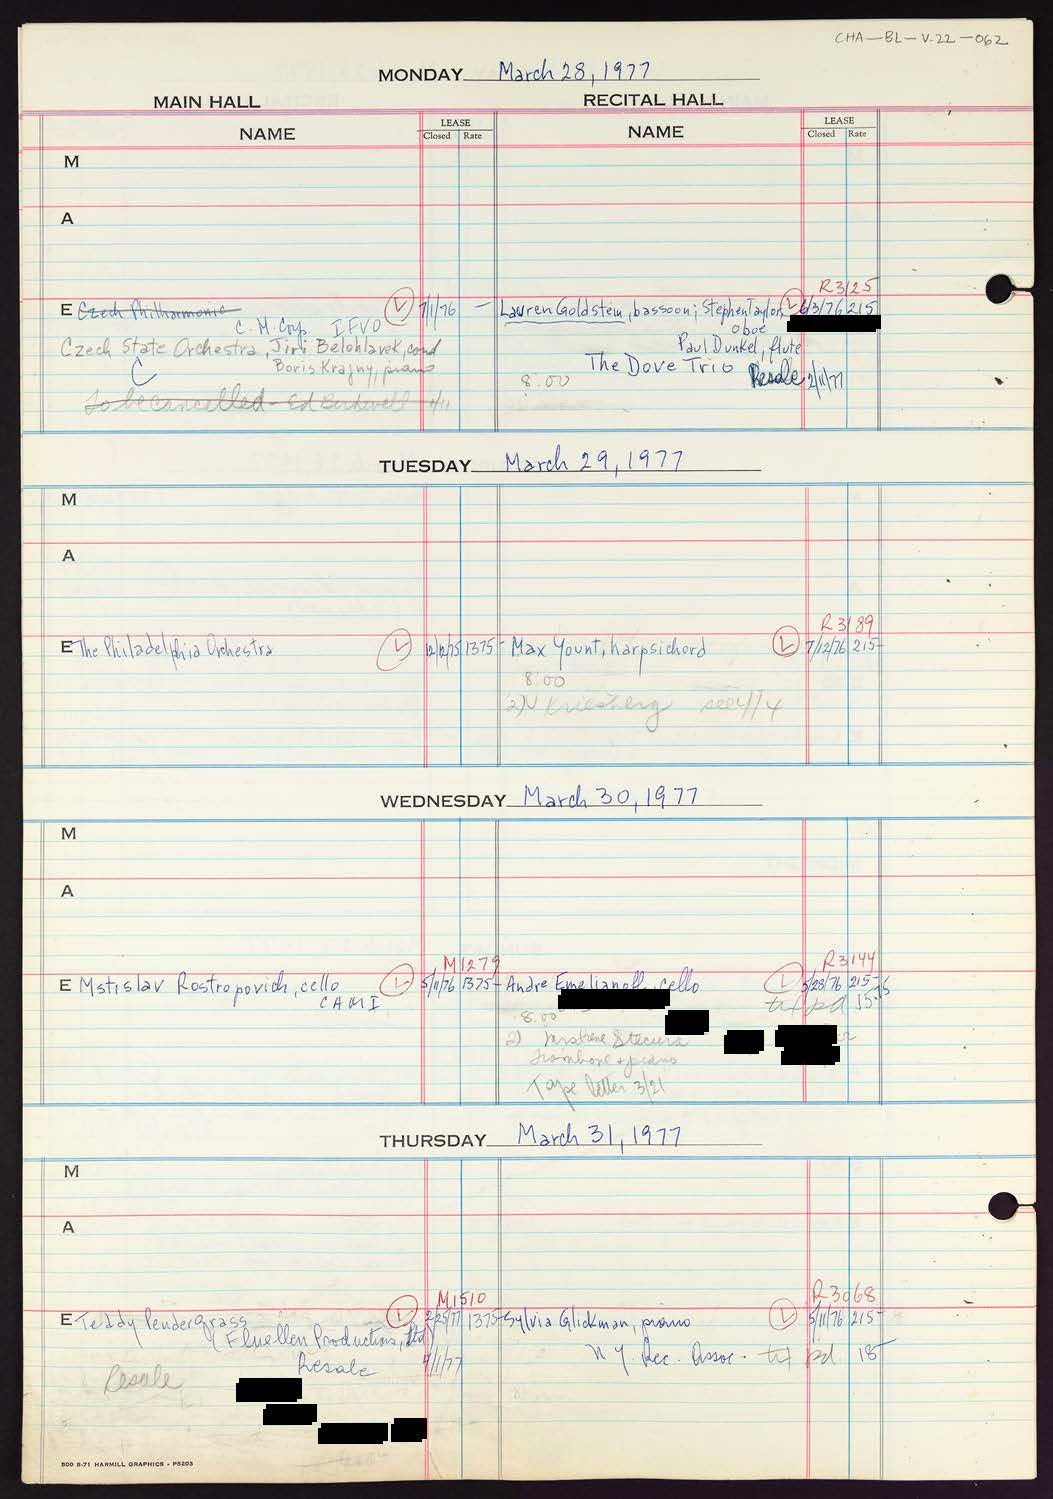 CHA-BL-V.22-062
MONDAY March 28, 1977
MAIN HALL RECITAL HALL
NAME LEASE Closed Rate NAME LEASE Closed Rate
M
A
R3125
E Czech Philharmonic L 7/1/76 - Lauren Goldstein, bassoon; Stephen Taylor, L 6/3/76 215
C.M. Corp. IFVO oboe
Czech State Orchestra, Jiri Belohlavek, cond Paul Dunkel, flute
Boris Krajny, piano The Dove Trio
C 8:00 Resale 2/11/77
To be cancelled - Ed 1/11
TUESDAY March 29, 1977
M
A
R3189
E The Philadelphia Orchestra L 12/12/75 1375- Max Yount, harpsichord L 7/12/76 215-
8:00
2) Kriesberg see 4/14
WEDNESDAY March 30, 1977
M
A
M1279 R3144
E Mstislav Rostropovich, cello L 5/11/76 1375- Andre Emelianoff, cello L 5/28/76 215-
CAMI txt pd 15-
8:00
2) Stecura
trombone + piano
Tape letter 3/21
THURSDAY March 31, 1977
M
A
M1510 R3068
E Teddy Pendergrass L 2/25/77 1375- Sylvia Glickman, piano L 5/11/76 215-
Fluellen Productions, Ltd N.Y. Rec. Assoc. - txt pd. 18-
Resale 4/1/77
Resale
500 8-71 HARMILL GRAPHICS - P5203